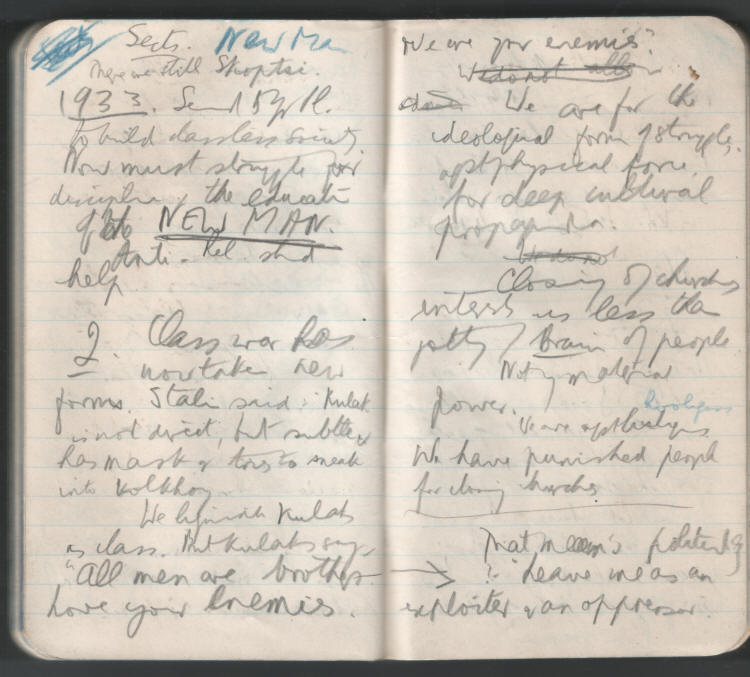 Sects. New Ma
There are still Skoptsi.
1933. Second 5 yr Pl.
to build classless society.
Now must struggle for
discipline & the educati
of the NEW MAN.
Anti-Rel shd
help.
2. Class war has
now taken new
forms. Stalin said: Kulak
is not direct, but subtle &
has mask & tries to sneak
into Kolkhoz.
We liquidate Kulaks
as class. But Kulaks says
"All men are brothers
Love your Enemies.
We are yr enemies".
We do not allow
We are for the
ideological form of struggle,
agst physical force,
for deep cultural
propaganda.
We do not
Closing of churches
interests us less than
of Brain of people
Not by material
power. hooligans
We are agst hooligans
We have punished people
for closing churches
That means politically
: "Leave me as an
exploiter & an oppressor.